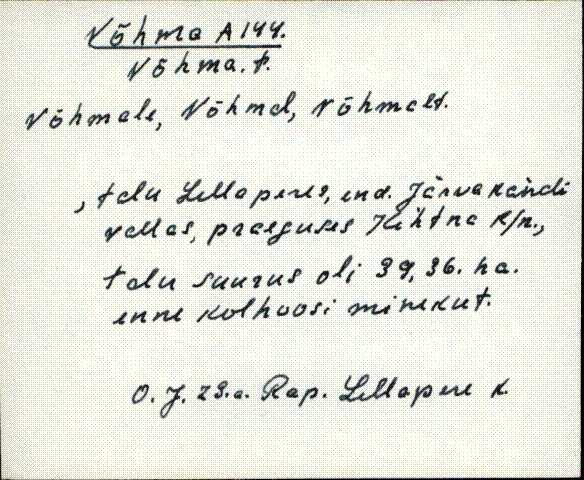 Võhma A 144.
Võhma. t.
Võhmale, Võhmal, Võhmalt.
, talu Lellaperes, end. Järvakandi
vallas, praeguses Kehtna k/n.,
talu suurus oli 39,36. ha.
enne kolhoosi minekut.
O. J. 29.a. Rap. Lellapere k.